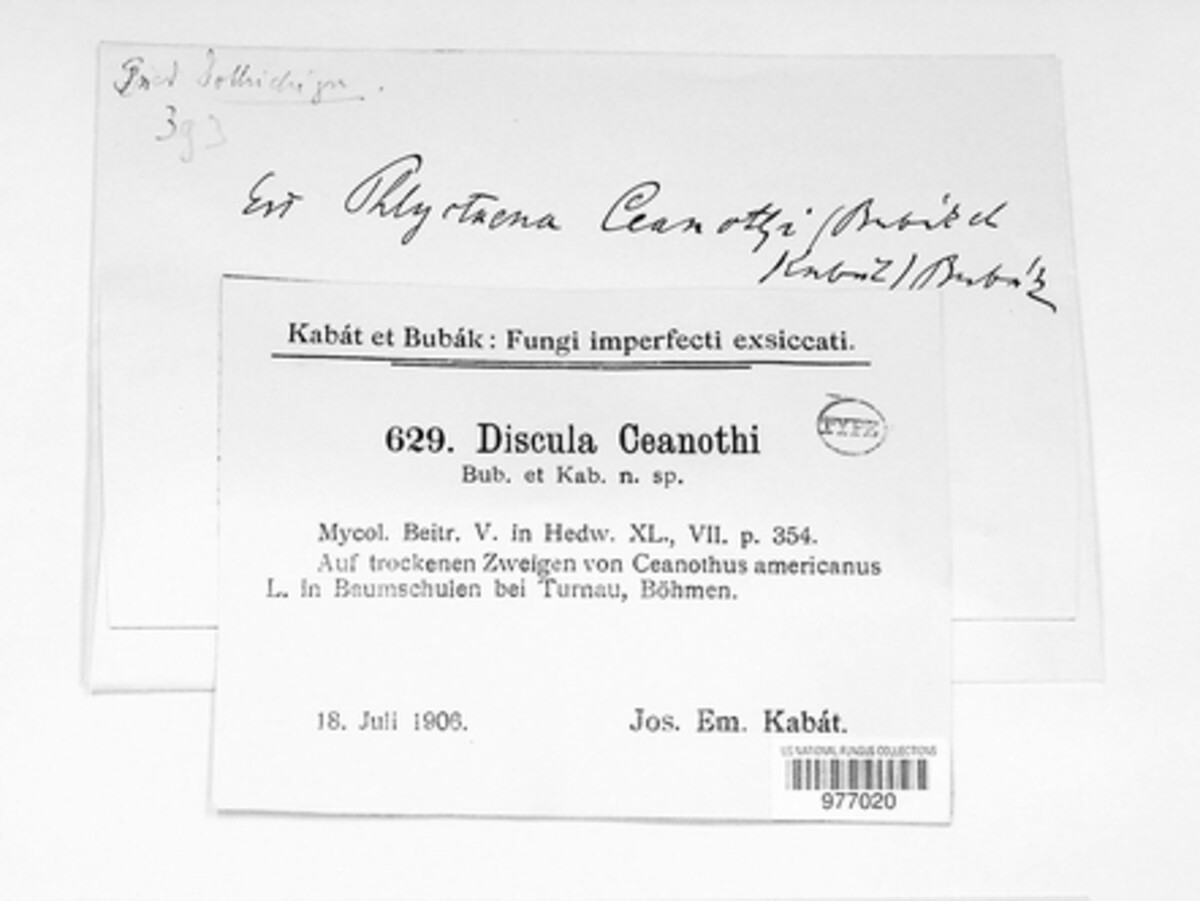 393
Est Phlyctaena Ceanothi (Bubák et
Kabát) Bubák
Kabát et Bubák: Fungi imperfecti exsiccati.
629. Discula Ceanothi
TYPE
Bub. et Kab. n. sp.
Mycol. Beitr. V. in Hedw. XL., VII. p. 354.
Auf trockenen Zweigen von Ceanothus americanus
L. in Baumschulen bei Turnau, Böhmen.
18. Juli 1906.
Jos. Em. Kabát.
US NATIONAL FUNGUS COLLECTIONS
977020